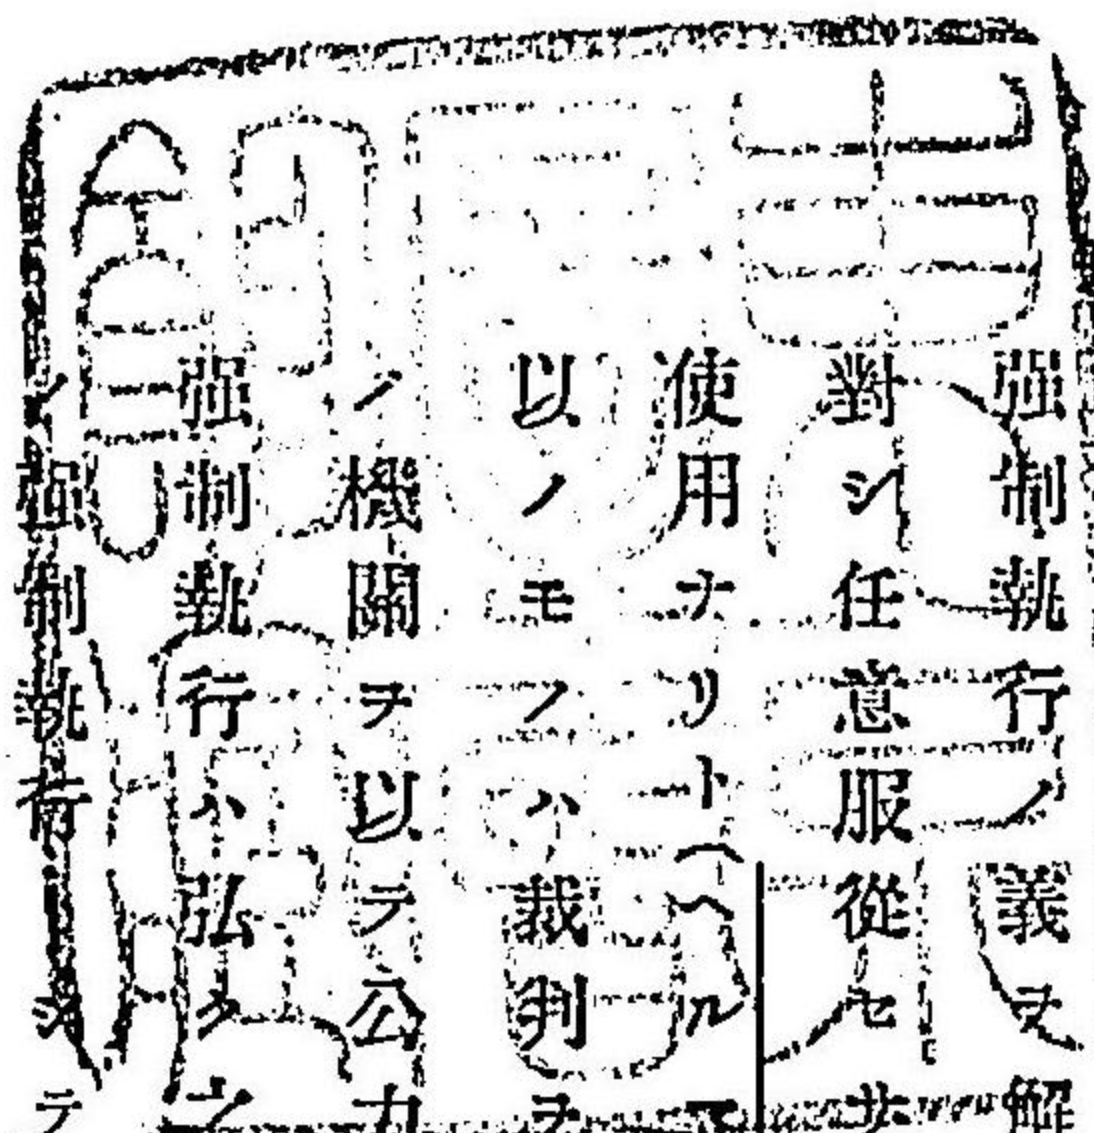 强制執行ノ義ヲ解
對シ任意服從セサ
使用ナリト(ヘルマ
以ノモノハ裁判ヲ
ノ機關ヲ以テ公力
强制執行ハ弘ク
ノ强制執行シテ